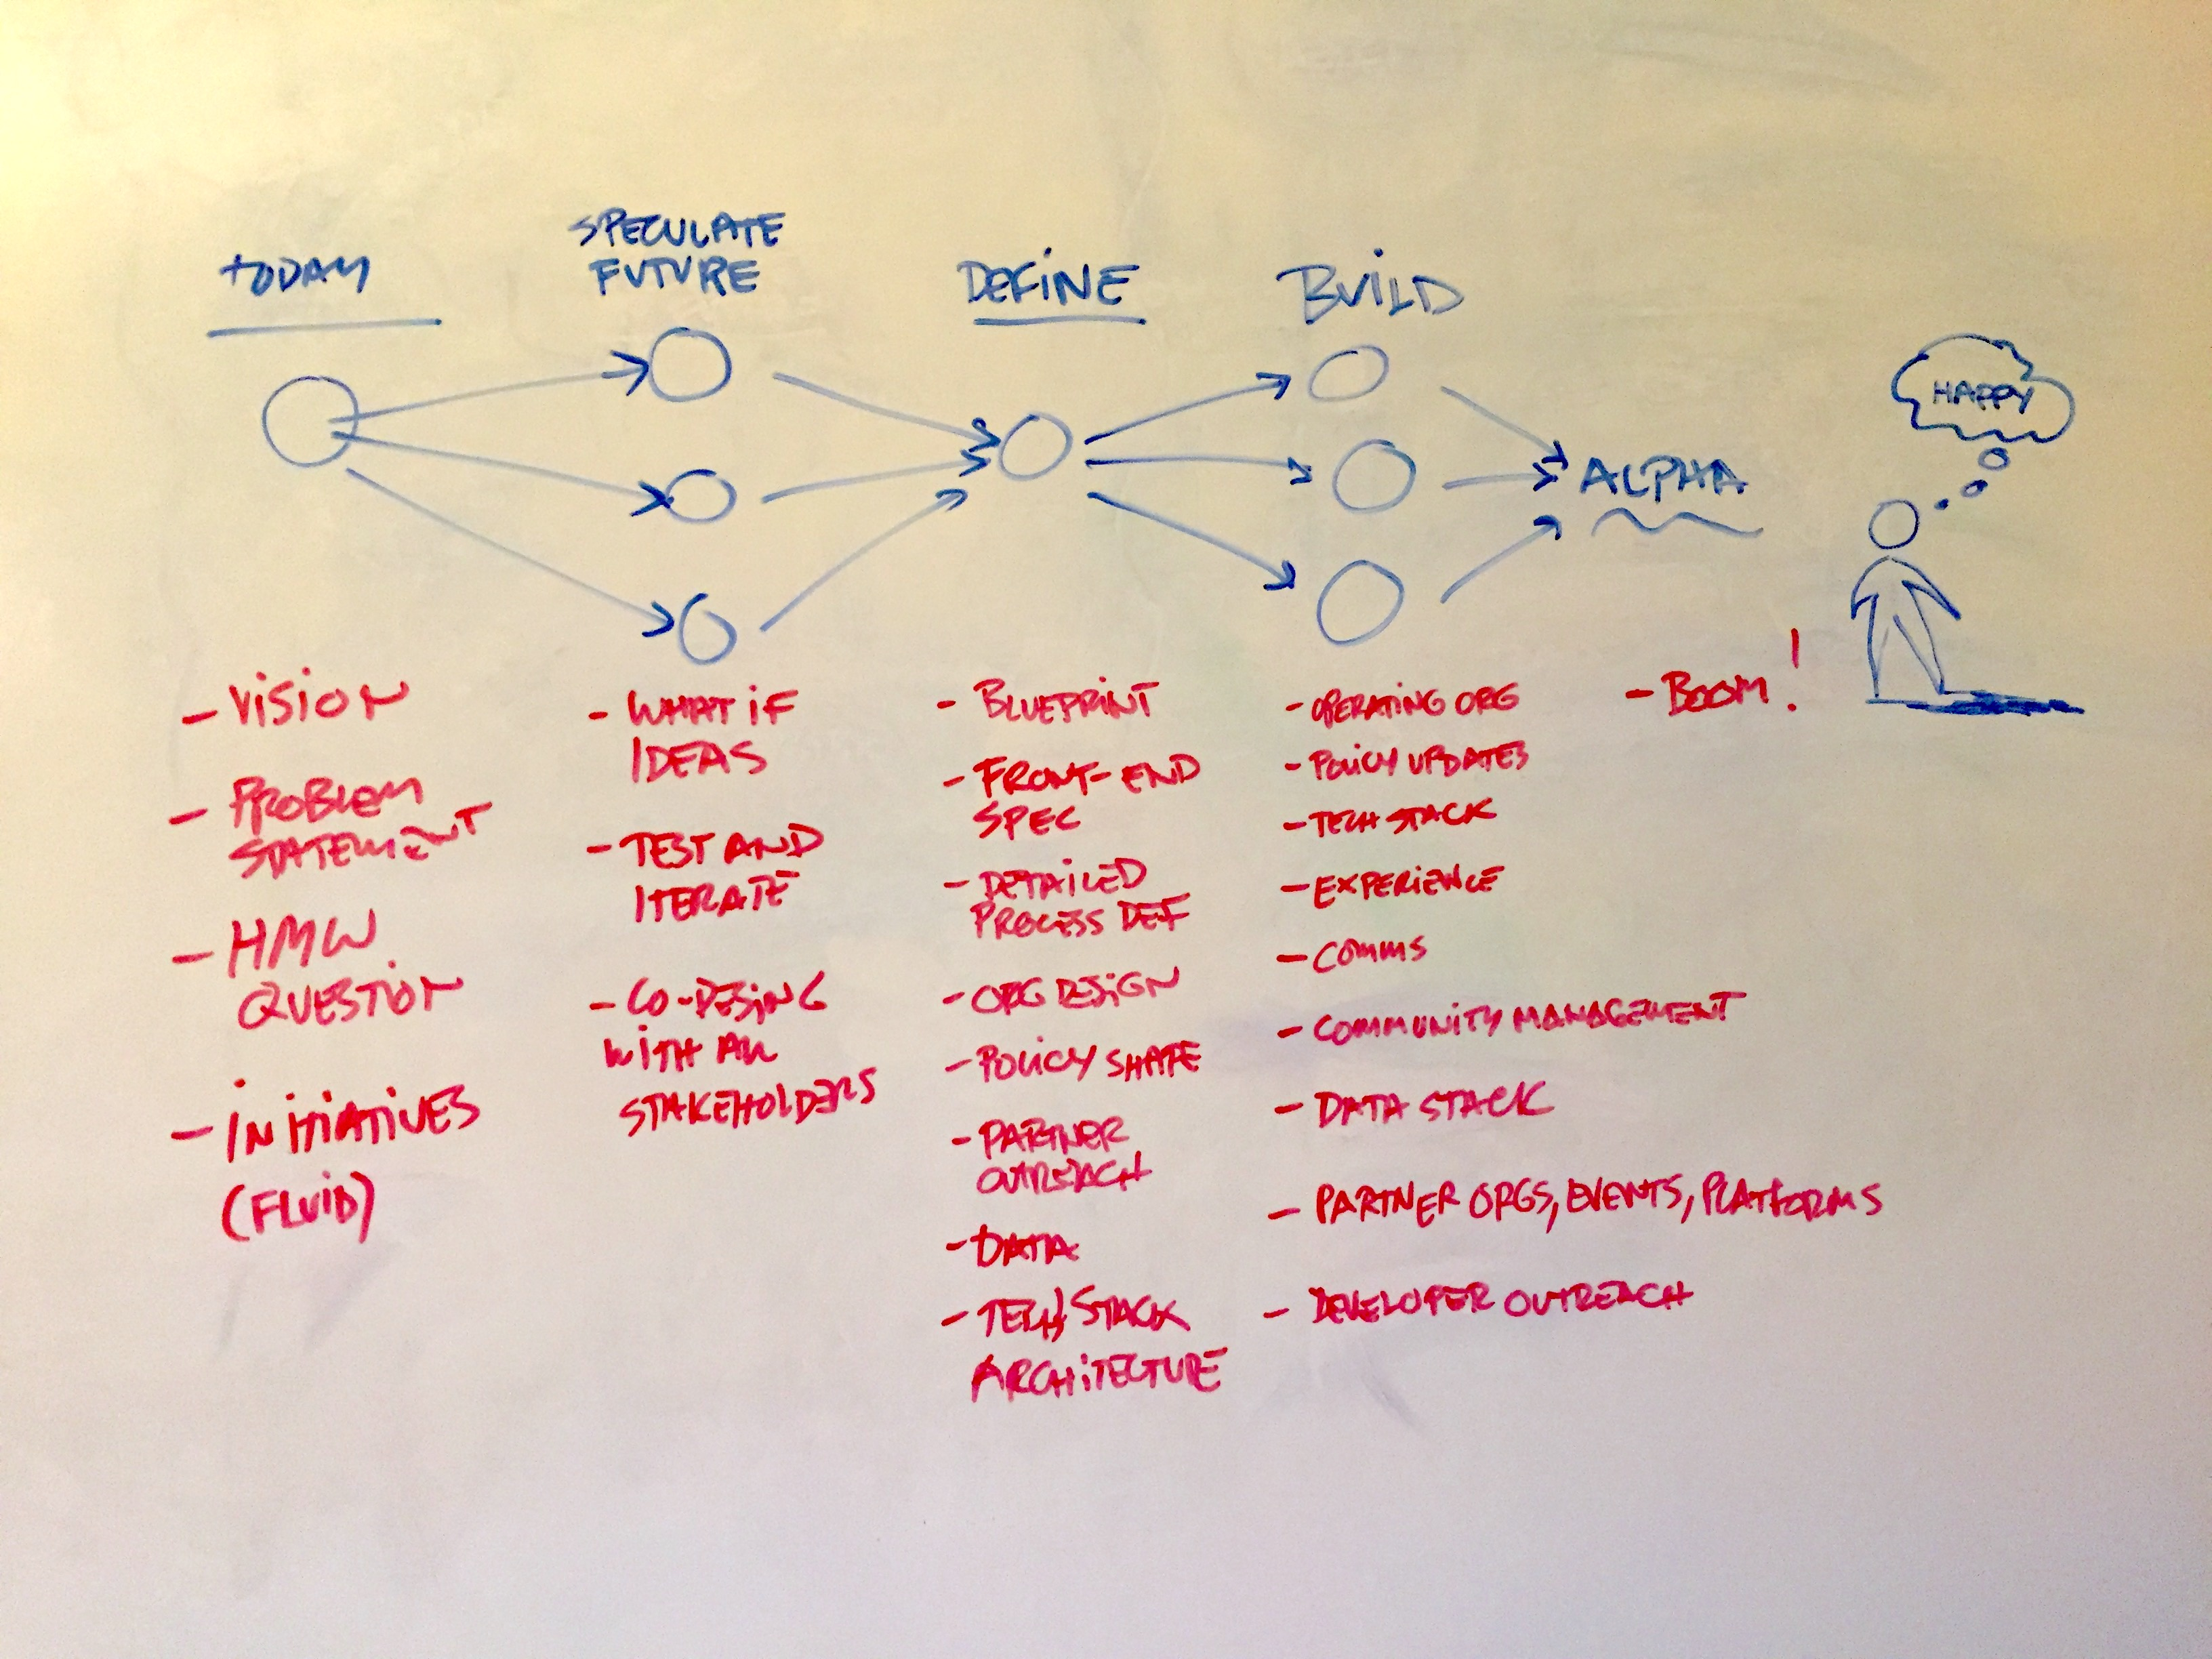 TODAY
SPECULATE
FUTURE
DEFINE
BUILD
ALPHA
HAPPY
- VISION
- PROBLEM
STATEMENT
- HMW
QUESTION
- INITIATIVES
(FLUID)
- WHAT IF
IDEAS
- TEST AND
ITERATE
- CO-DESING
WITH ALL
STAKEHOLDERS
- BLUEPRINT
- FRONT-END
SPEC
- DETAILED
PROCESS DEF
- ORG DESIGN
- POLICY SHAPE
- PARTNER
OUTREACH
- DATA
- TECH/STACK
ARCHITECTURE
- OPERATING ORG
- POLICY UPDATES
- TECH STACK
- EXPERIENCE
- COMMS
- COMMUNITY MANAGEMENT
- DATA STACK
- PARTNER ORGS, EVENTS, PLATFORMS
- DEVELOPER OUTREACH
- BOOM!